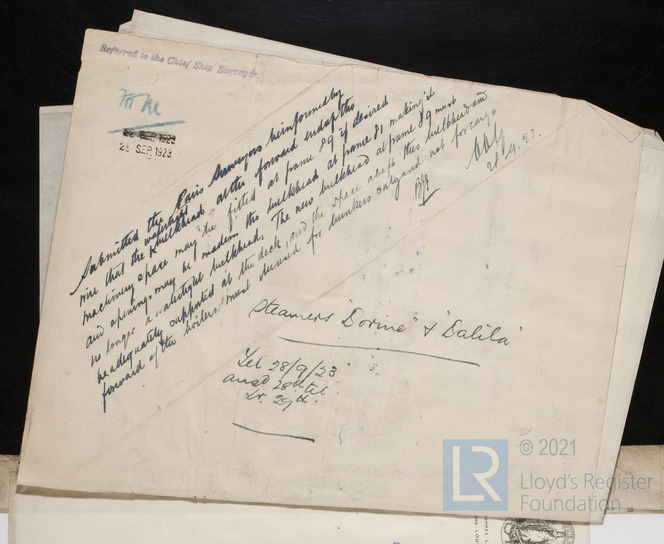 Referred to the Chief Ship Surveyor.
28 SEP 1923
28 SEP. 1923
Submitted the Paris Surveyors be informed by
wire that the watertight bulkhead at the forward end of the
machinery space may be fitted at frame 89 if desired
and openings may be made in the bulkhead at frame 81 making it
no longer a watertight bulkhead. The new bulkhead at frame 89 must
be adequately supported at the deck, and the space abaft this bulkhead and
forward of the boilers must be used for bunkers only and not for cargo.
28.9.23.
Steamers "Dorine" & "Dalila"
Tel 28/9/23
ansd 28th tel.
Lr. 29th.
LR
© 2021
Lloyd's Register
Foundation